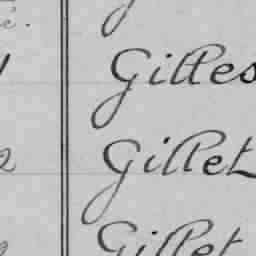 Gilles
2 Gillet
Gillet